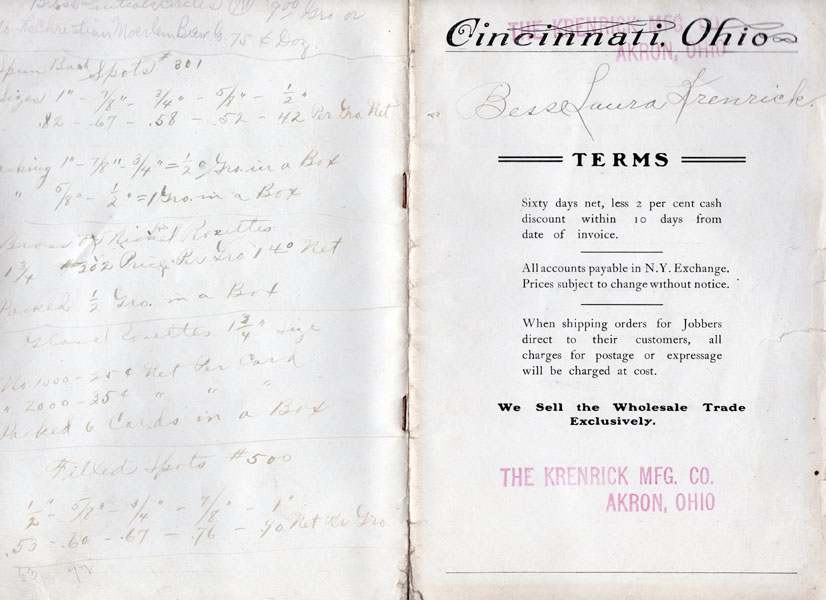 Brass Initials Circles 9.00 Gro or
to The Christian Moerlein Brew Co. 75 ¢ Doz.
Spun Back Spots # 301
Sizes 1" - 7/8" - 3/4" - 5/8" - 1/2"
.82 - .67 - .58 - .52 - 42 Per Gro. Net
Packing 1" - 7/8" - 3/4" = 1/2 Gro. in a Box
" 5/8" - 1/2" = 1 Gro. in a Box
Brass or Nickel Rosettes
1 3/4 #302 Price Per Gro 140 Net
Packed 1/2 Gro. in a Box
Rosettes 1 3/4" Size
No. 1000 - 25¢ Net Per Card
" 2000 - 35¢ " " "
Packed 6 Cards in a Box
Filled Spots #500
1/2" - 5/8" - 3/4" - 7/8" - 1"
.53 - .60 - .67 - .76 - .90 Net Per Gro.
Cincinnati, Ohio
THE KRENRICK MFG.
AKRON, OHIO
Besse Laura Krenrick.
TERMS
Sixty days net, less 2 per cent cash
discount within 10 days from
date of invoice.
All accounts payable in N.Y. Exchange.
Prices subject to change without notice.
When shipping orders for Jobbers
direct to their customers, all
charges for postage or expressage
will be charged at cost.
We Sell the Wholesale Trade
Exclusively.
THE KRENRICK MFG. CO.
AKRON, OHIO